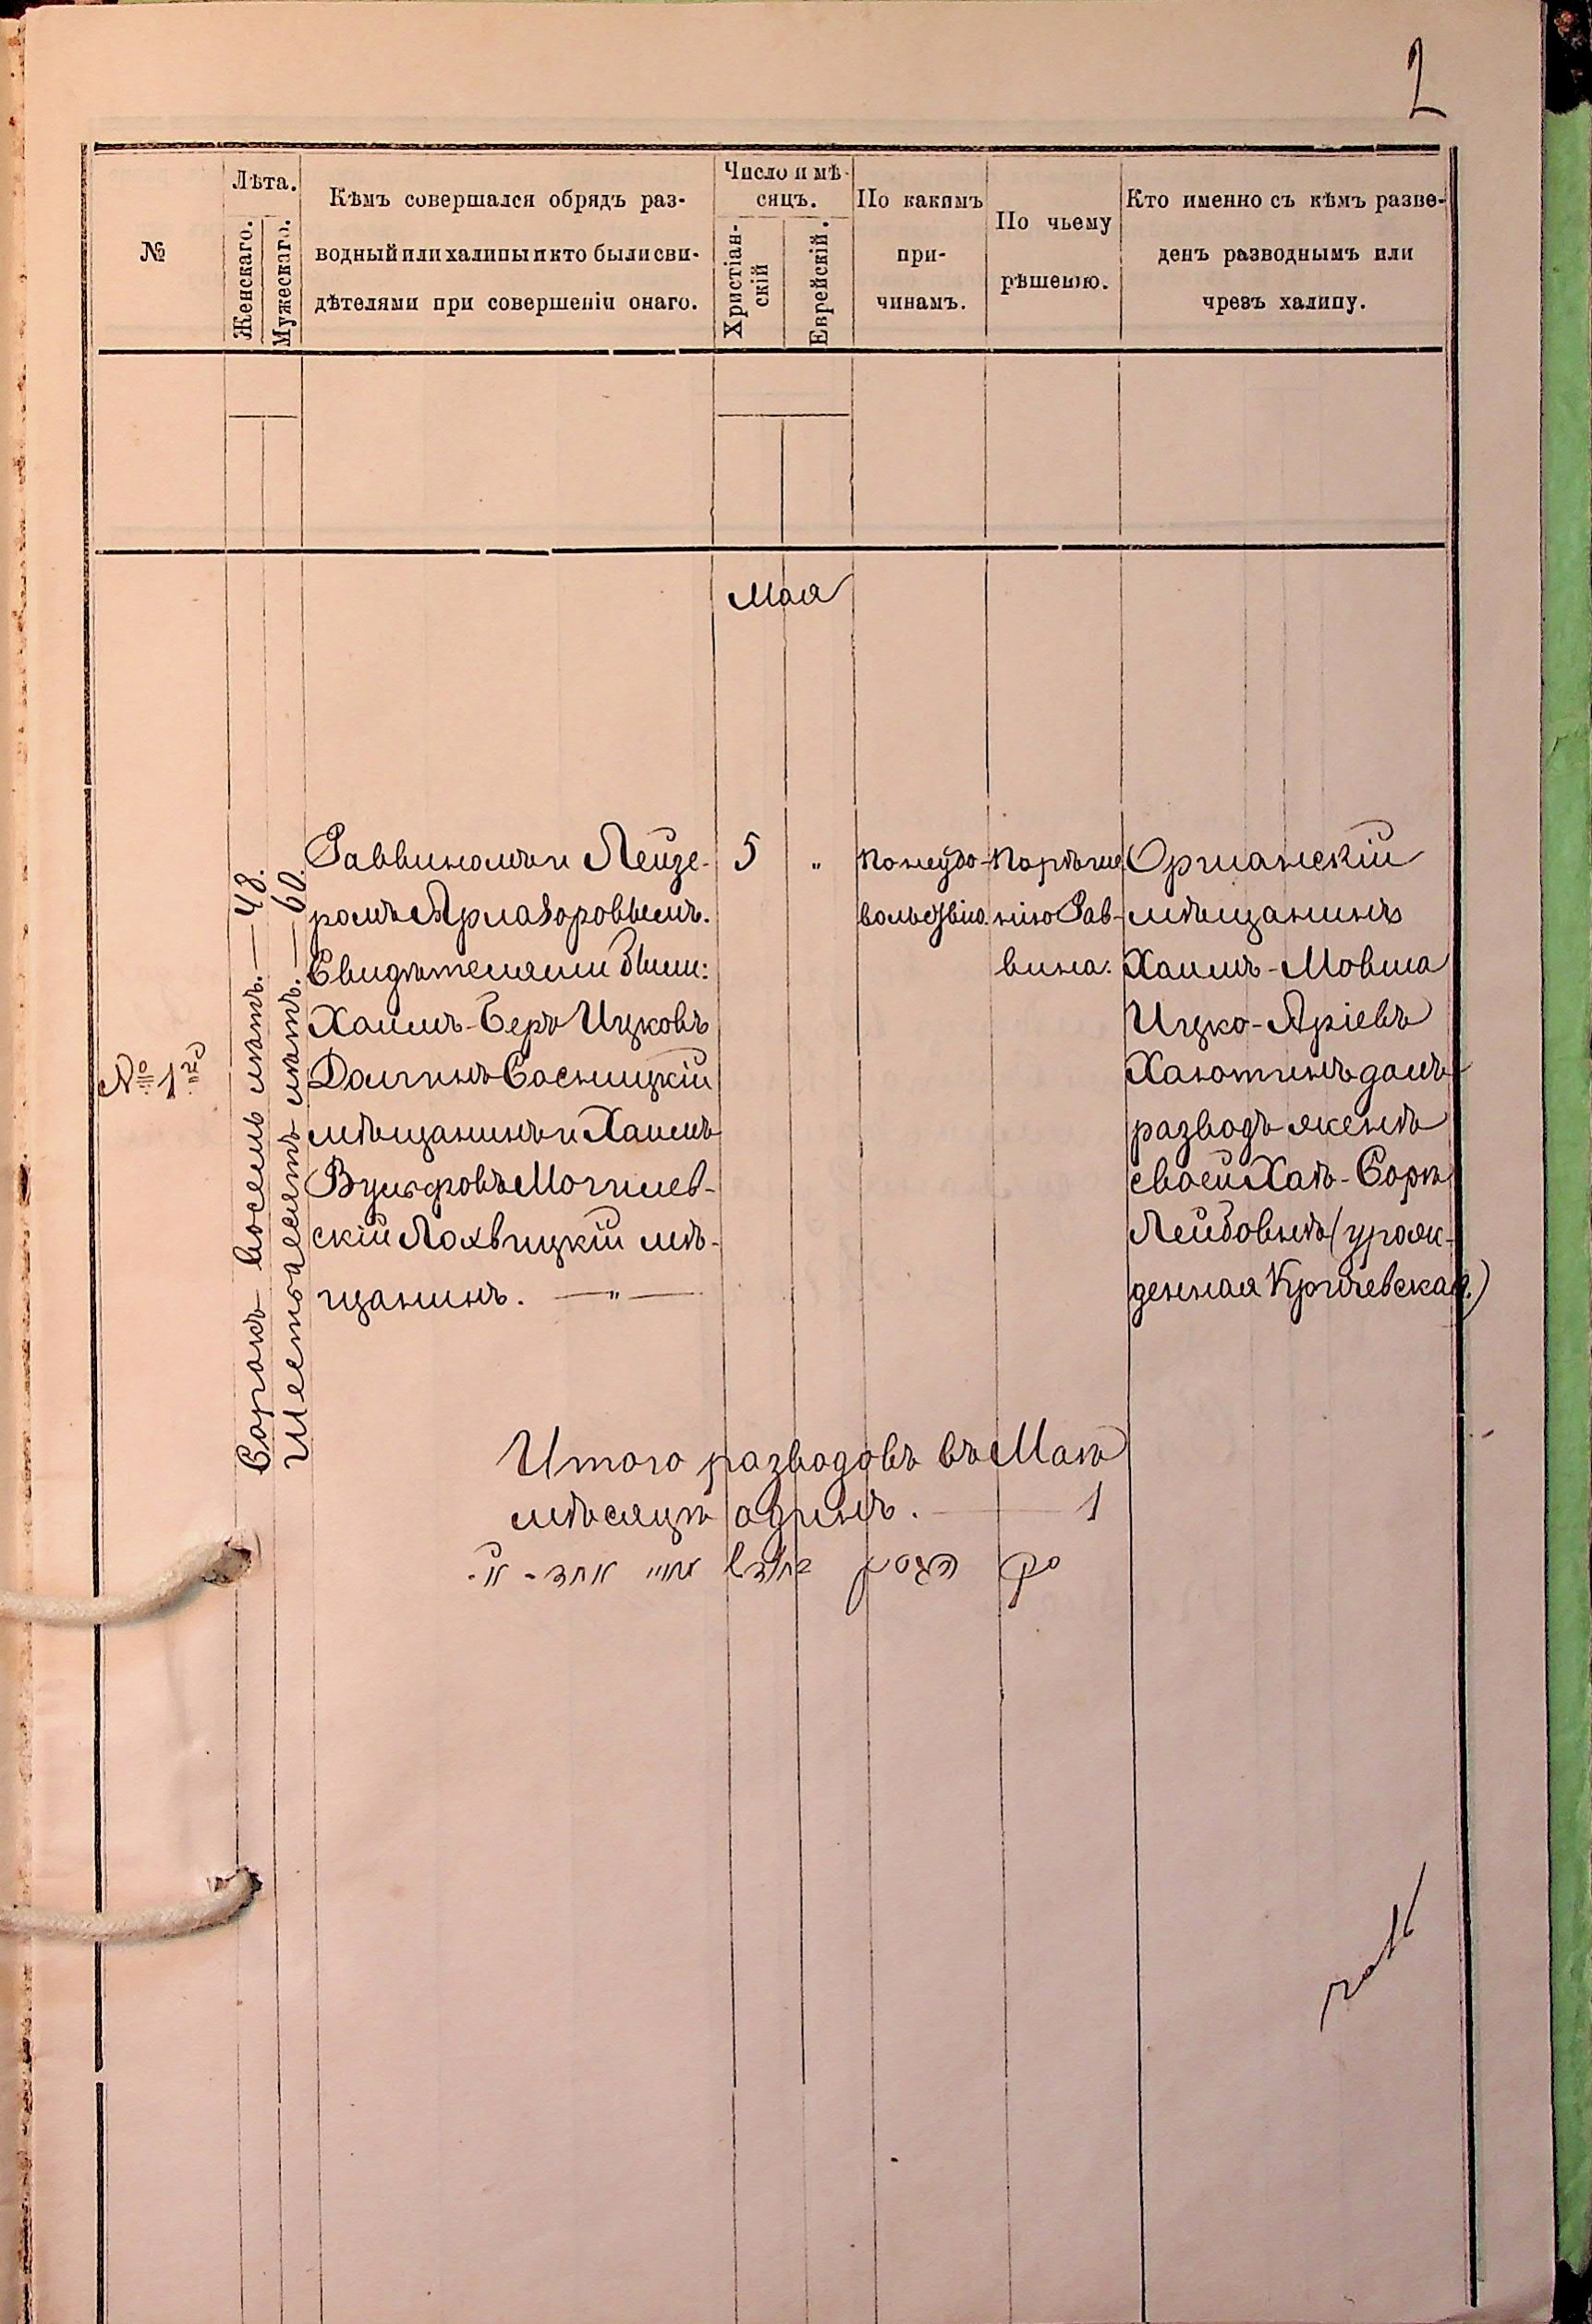 2
№
Лѣта.
Женскаго.
Мужескаго.
Кѣмъ совершался обрядъ раз-
водный или халицы и кто были сви-
дѣтелями при совершеніи онаго.
Число и мѣ-
сяцъ.
Христіан-
скій
Еврейскій.
По какимъ
при-
чинамъ.
По чьему
рѣшенію.
Кто именно съ кѣмъ разве-
денъ разводнымъ или
чрезъ халицу.
Мая
№ 1й
Сорокъ восемь лѣтъ. — 48.
Шестьдесятъ лѣтъ. — 60.
Раввиномъ и Лейзе-
ромъ Арлазоровымъ.
Свидѣтелями были:
Хаимъ-Беръ Ицковъ
Долгинъ Сосницкій
мѣщанинъ и Хаимъ
Вульфовъ Могилев-
скій Лохвицкій мѣ-
щанинъ. — " —
5
"
По неудо-
вольствію.
По рѣше-
нію Рав-
вина.
Оршанскій
мѣщанинъ
Хаимъ-Мовша
Ицко-Аріевъ
Хаютинъ далъ
разводъ женѣ
своей Хаѣ-Сорѣ
Лейбовнѣ (урож-
денная Кричевская.)
Итого разводовъ въ Маѣ
мѣсяцѣ одинъ. — 1